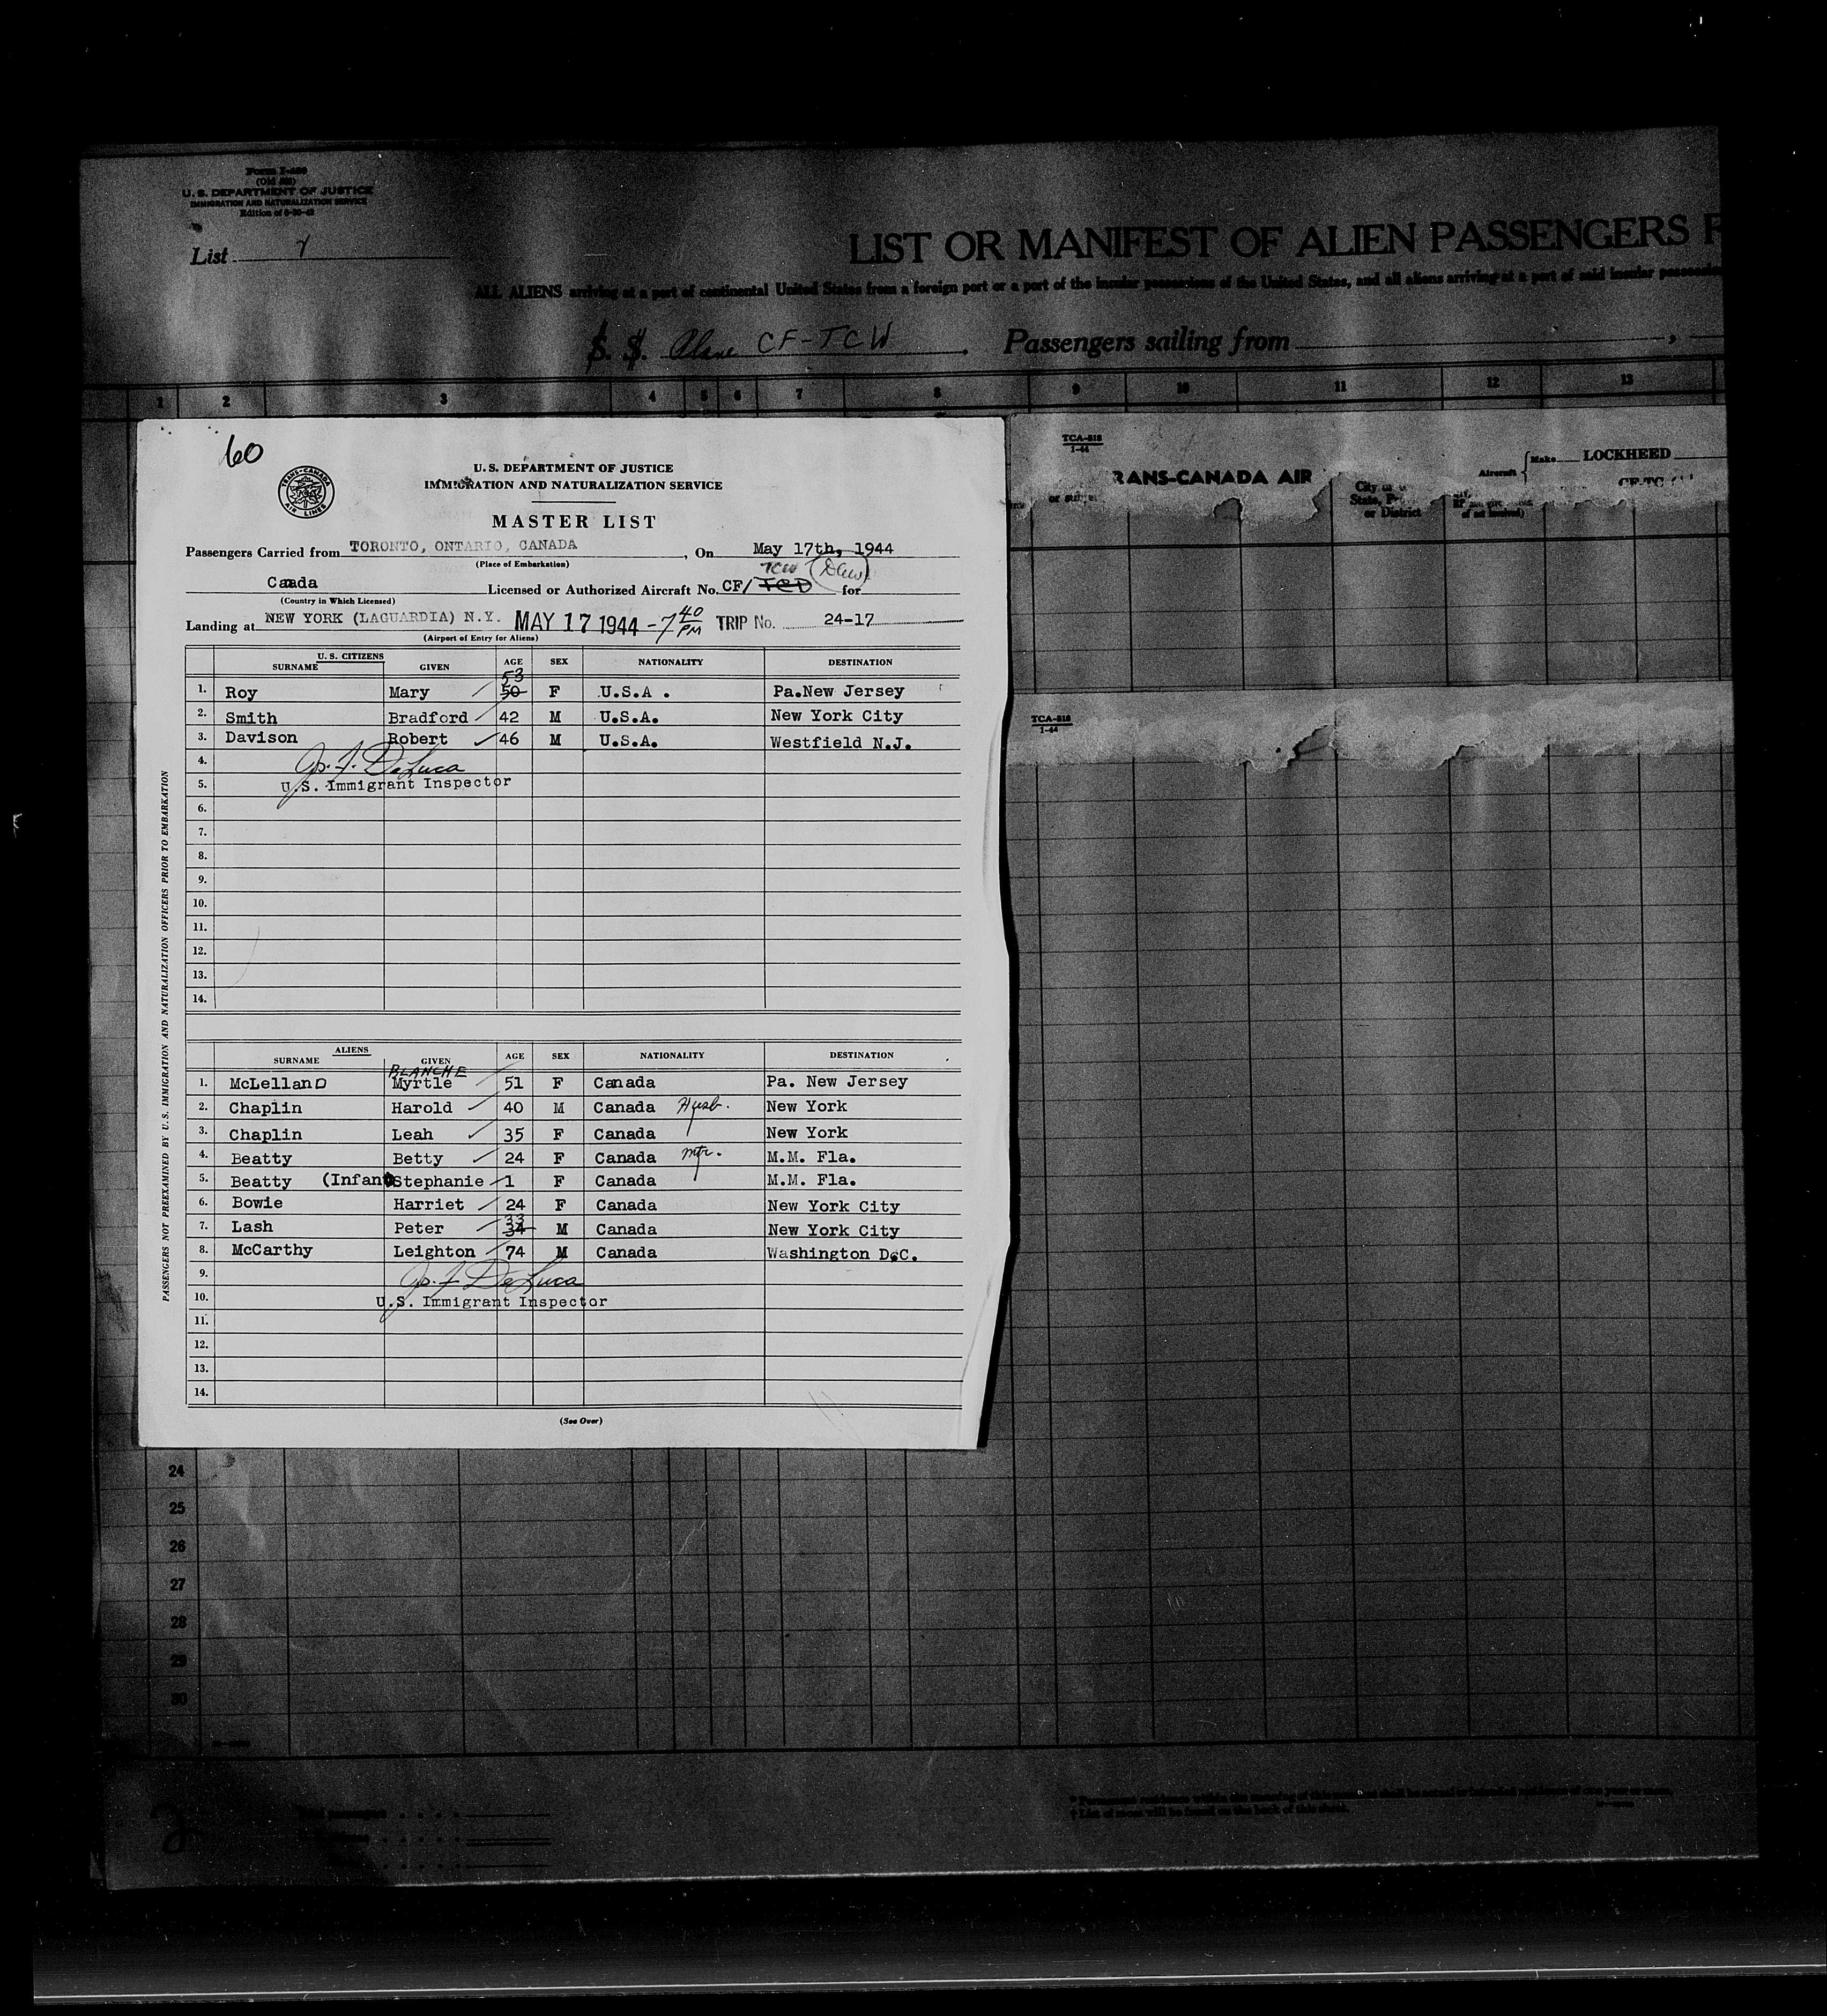 Form I-
U. S. DEPARTMENT OF JUSTICE
IMMIGRATION AND NATURALIZATION SERVICE
Edition of
List
LIST OR MANIFEST OF ALIEN PASSENGERS F
ALL ALIENS arriving at a port of continental United States from a foreign port or a port of the insular possessions of the United States, and all aliens arriving at a port of said insular possessio
S. S. Plane CF-TCW . Passengers sailing from ,
1 2 3 4 5 6 7 8 9 10 11 12 13
TCA-818
1-44
RANS-CANADA AIR
Aircraft Make LOCKHEED
CF-TC
City or
State, P
or District
TCA-818
1-44
60
TRANS-CANADA AIR LINES
U. S. DEPARTMENT OF JUSTICE
IMMIGRATION AND NATURALIZATION SERVICE
MASTER LIST
Passengers Carried from TORONTO, ONTARIO, CANADA , On May 17th, 1944
(Place of Embarkation)
TCW
Caada Licensed or Authorized Aircraft No. CF/ TCD for
(Country in Which Licensed)
Landing at NEW YORK (LAGUARDIA) N.Y. MAY 17 1944 - 7 40 PM TRIP No. 24-17
(Airport of Entry for Aliens)
U. S. CITIZENS
SURNAME GIVEN AGE SEX NATIONALITY DESTINATION
53
1. Roy Mary 50 F U.S.A . Pa.New Jersey
2. Smith Bradford 42 M U.S.A. New York City
3. Davison Robert 46 M U.S.A. Westfield N.J.
4. Jos. F. DeLuca
5. U.S. Immigrant Inspector
6.
7.
8.
9.
10.
11.
12.
13.
14.
ALIENS
SURNAME GIVEN AGE SEX NATIONALITY DESTINATION
BLANCHE
1. McLellanD Myrtle 51 F Canada Pa. New Jersey
2. Chaplin Harold 40 M Canada Husb. New York
3. Chaplin Leah 35 F Canada New York
4. Beatty Betty 24 F Canada mtr. M.M. Fla.
5. Beatty (Infant) Stephanie 1 F Canada M.M. Fla.
6. Bowie Harriet 24 F Canada New York City
33
7. Lash Peter 34 M Canada New York City
8. McCarthy Leighton 74 M Canada Washington D.C.
9. Jos. F DeLuca
10. U.S. Immigrant Inspector
11.
12.
13.
14.
(See Over)
PASSENGERS NOT PREEXAMINED BY U. S. IMMIGRATION AND NATURALIZATION OFFICERS PRIOR TO EMBARKATION
24
25
26
27
28
29
30
* Permanent residence within the meaning of this
† List of races will be found on the back of this sheet.